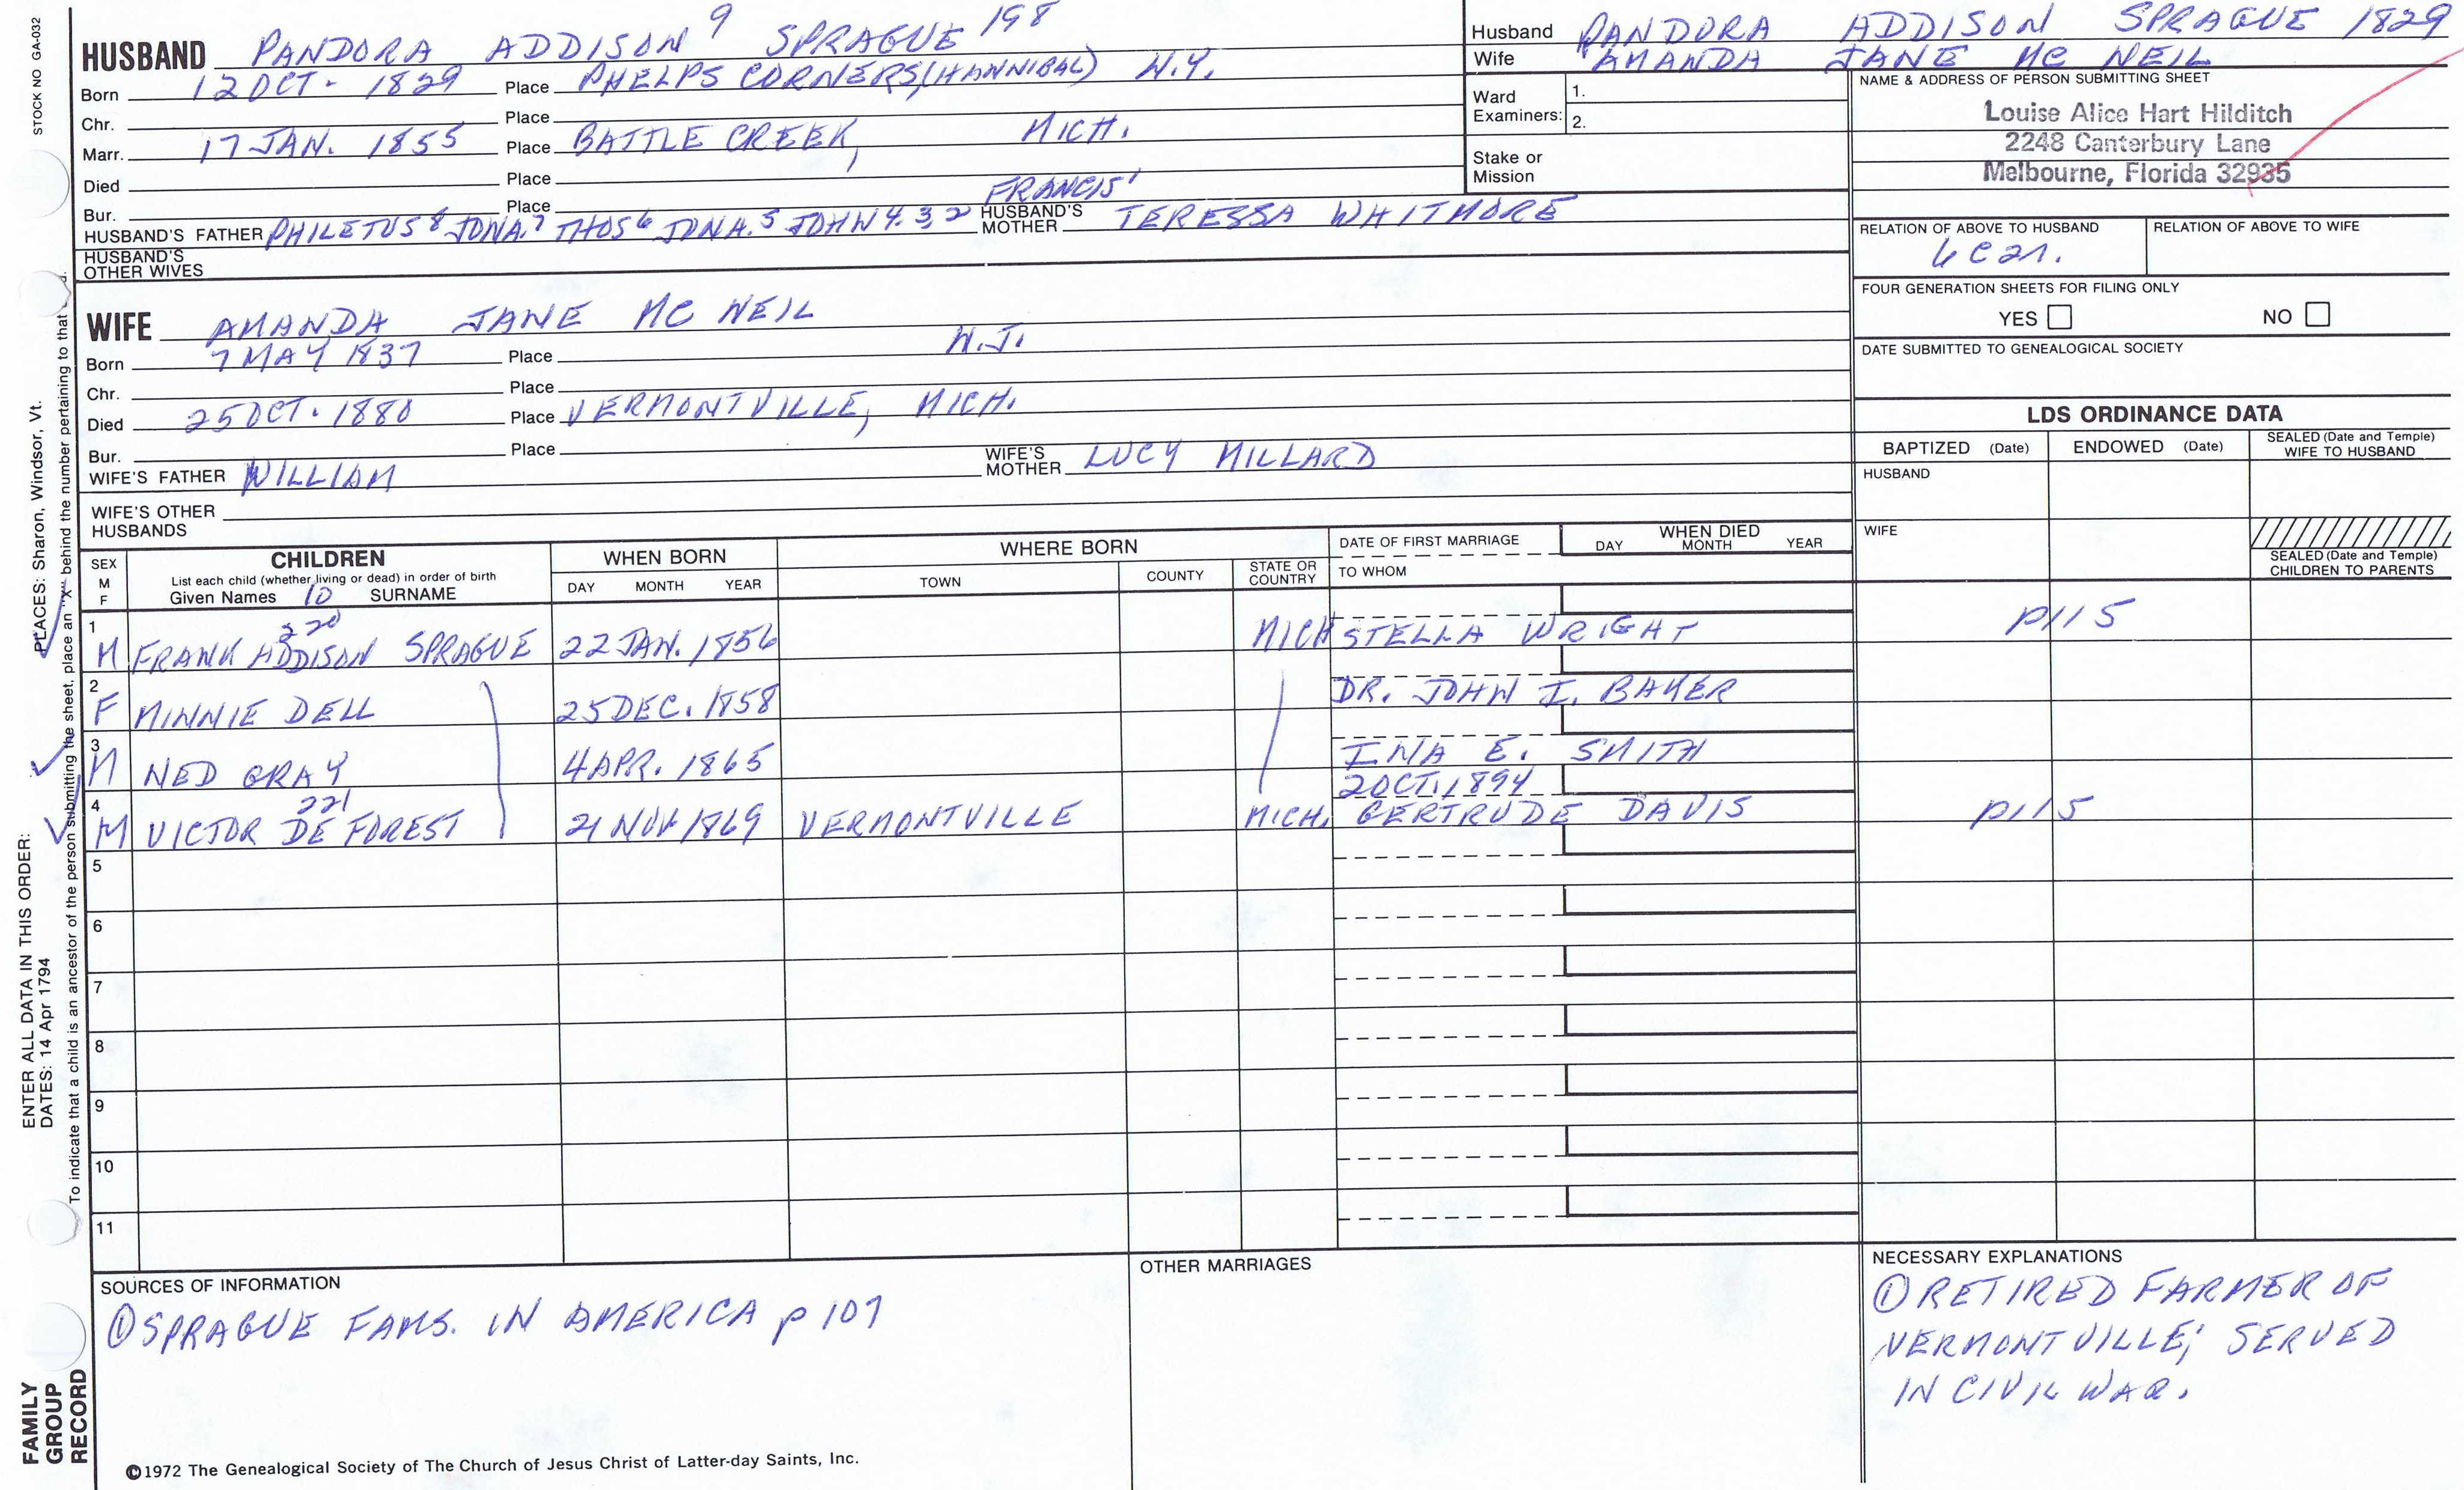 STOCK NO GA-032
HUSBAND PANDORA ADDISON 9 SPRAGUE 198
Born 12 OCT. 1829 Place PHELPS CORNERS, (HANNIBAL) N.Y.
Chr. Place
Marr. 17 JAN. 1855 Place BATTLE CREEK, MICH.
Died Place
Bur. Place
HUSBAND'S FATHER PHILETUS 8 JONA. 7 THOS 6 JONA. 5 JOHN 4.3 2 FRANCIS' HUSBAND'S MOTHER TERESSA WHITMORE
HUSBAND'S OTHER WIVES
Husband PANDORA ADDISON SPRAGUE 1829
Wife AMANDA JANE MC NEIL
Ward Examiners: 1.
2.
Stake or Mission
NAME & ADDRESS OF PERSON SUBMITTING SHEET
Louise Alice Hart Hilditch
2248 Canterbury Lane
Melbourne, Florida 32935
RELATION OF ABOVE TO HUSBAND RELATION OF ABOVE TO WIFE
6C2r.
FOUR GENERATION SHEETS FOR FILING ONLY
YES NO
DATE SUBMITTED TO GENEALOGICAL SOCIETY
WIFE AMANDA JANE MC NEIL
Born 7 MAY 1837 Place N.J.
Chr. Place
Died 25 OCT. 1880 Place VERMONTVILLE, MICH.
Bur. Place
WIFE'S FATHER WILLIAM WIFE'S MOTHER LUCY MILLARD
WIFE'S OTHER HUSBANDS
LDS ORDINANCE DATA
BAPTIZED (Date) ENDOWED (Date) SEALED (Date and Temple) WIFE TO HUSBAND
HUSBAND
WIFE
SEALED (Date and Temple) CHILDREN TO PARENTS
SEX M F CHILDREN WHEN BORN WHERE BORN DATE OF FIRST MARRIAGE WHEN DIED
List each child (whether living or dead) in order of birth
Given Names 10 SURNAME DAY MONTH YEAR TOWN COUNTY STATE OR COUNTRY TO WHOM DAY MONTH YEAR
220
1 M FRANK ADDISON SPRAGUE 22 JAN. 1856 MICH STELLA WRIGHT p115
2 F MINNIE DELL 25 DEC. 1858 DR. JOHN I. BAKER
3 M NED GRAY 4 APR. 1865 INA E. SMITH
221 2 OCT. 1894
4 M VICTOR DE FOREST 21 NOV 1869 VERMONTVILLE MICH. GERTRUDE DAVIS p115
5
6
7
8
9
10
11
SOURCES OF INFORMATION
① SPRAGUE FAMS. IN AMERICA p 107
OTHER MARRIAGES
NECESSARY EXPLANATIONS
① RETIRED FARMER OF
VERMONTVILLE; SERVED
IN CIVIL WAR.
©1972 The Genealogical Society of The Church of Jesus Christ of Latter-day Saints, Inc.
FAMILY
GROUP
RECORD
ENTER ALL DATA IN THIS ORDER:
DATES: 14 Apr 1794
PLACES: Sharon, Windsor, Vt.
To indicate that a child is an ancestor of the person submitting the sheet, place an "X" behind the number pertaining to that